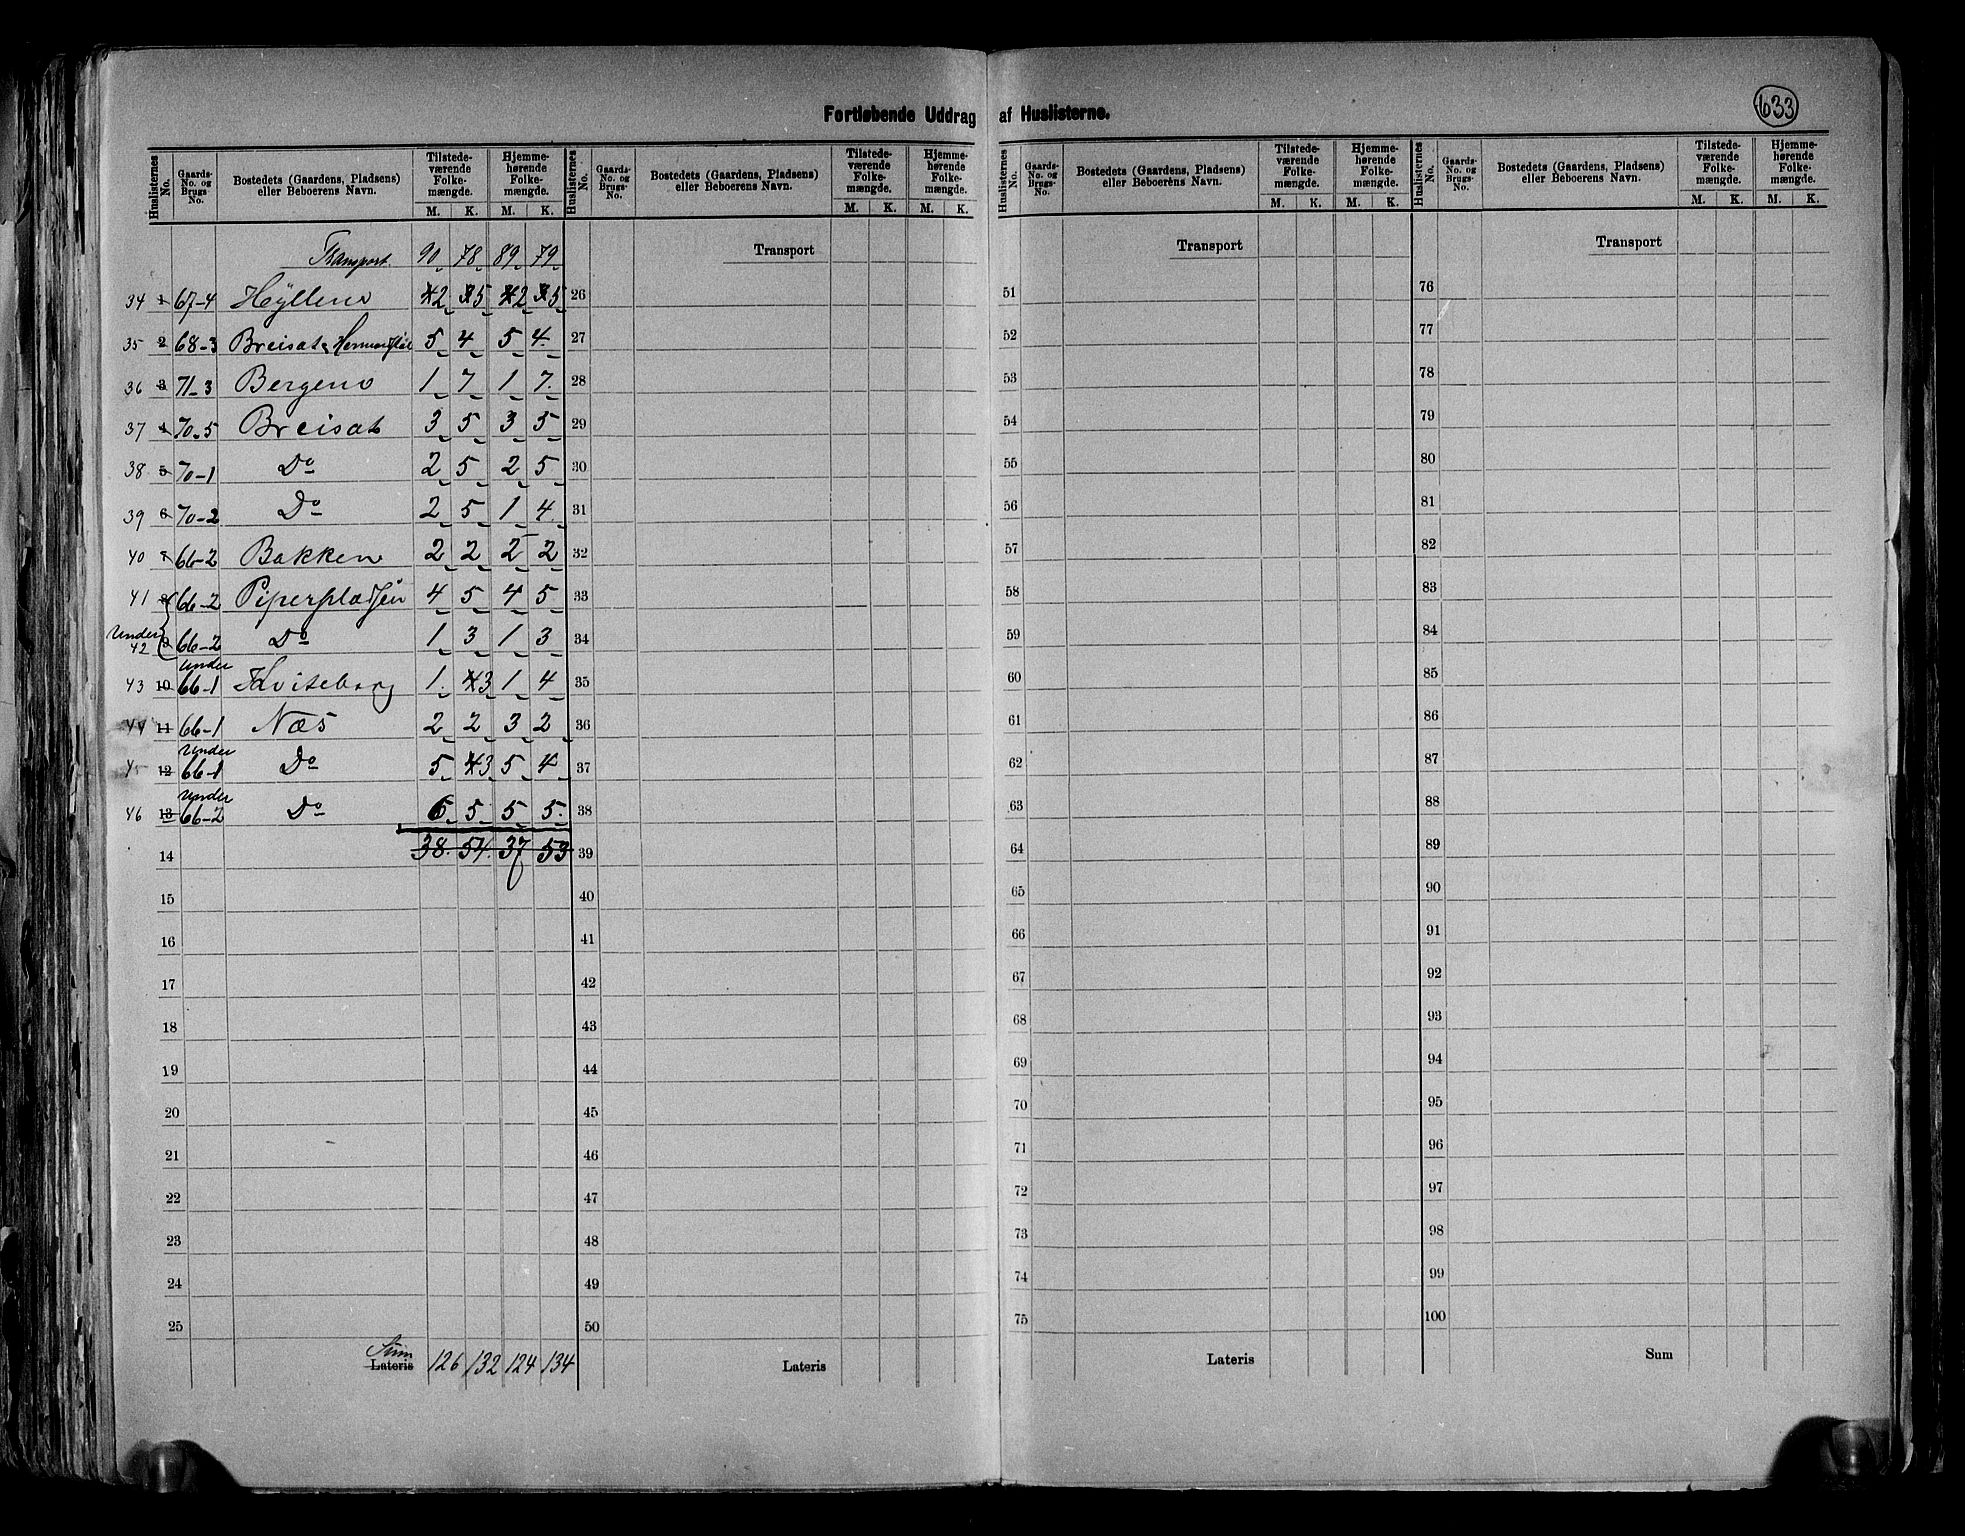 Fortløbende Uddrag af Huslisterne.
633
Huslisternes No. | Gaards- No. og Brugs- No. | Bostedets (Gaardens, Pladsens) eller Beboerens Navn. | Tilstede- værende Folke- mængde. M. K. | Hjemme- hørende Folke- mængde. M. K.
Huslisternes No. | Gaards- No. og Brugs- No. | Bostedets (Gaardens, Pladsens) eller Beboerens Navn. | Tilstede- værende Folke- mængde. M. K. | Hjemme- hørende Folke- mængde. M. K.
Huslisternes No. | Gaards- No. og Brugs- No. | Bostedets (Gaardens, Pladsens) eller Beboerens Navn. | Tilstede- værende Folke- mængde. M. K. | Hjemme- hørende Folke- mængde. M. K.
Huslisternes No. | Gaards- No. og Brugs- No. | Bostedets (Gaardens, Pladsens) eller Beboerens Navn. | Tilstede- værende Folke- mængde. M. K. | Hjemme- hørende Folke- mængde. M. K.
Transport. 90 78 89 79
34 1 67-4 Høyllens 2 5 2 5
35 2 68-3 Breisat 5 4 5 4
36 3 71-3 Bergens 1 7 1 7
37 4 70-5 Breisat 3 5 3 5
38 5 70-1 Do 2 5 2 5
39 6 70-2 Do 2 5 1 4
40 7 66-2 Bakken 2 2 2 2
41 8 66-2 Piperpladsen 4 5 4 5
Under 42 9 66-2 Do 1 3 1 3
43 10 under 66-1 Hviteberg 1 3 1 4
44 11 66-1 Næs 2 2 3 2
12 Under 66-1 Do 5 3 5 4
46 13 Under 66-2 Do 6 5 5 5
14 38 54 37 53
15
16
17
18
19
20
21
22
23
24
25
Sum Lateris 126 132 124 134
Transport
26
27
28
29
30
31
32
33
34
35
36
37
38
39
40
41
42
43
44
45
46
47
48
49
50
Lateris
Transport
51
52
53
54
55
56
57
58
59
60
61
62
63
64
65
66
67
68
69
70
71
72
73
74
75
Lateris
Transport
76
77
78
79
80
81
82
83
84
85
86
87
88
89
90
91
92
93
94
95
96
97
98
99
100
Sum